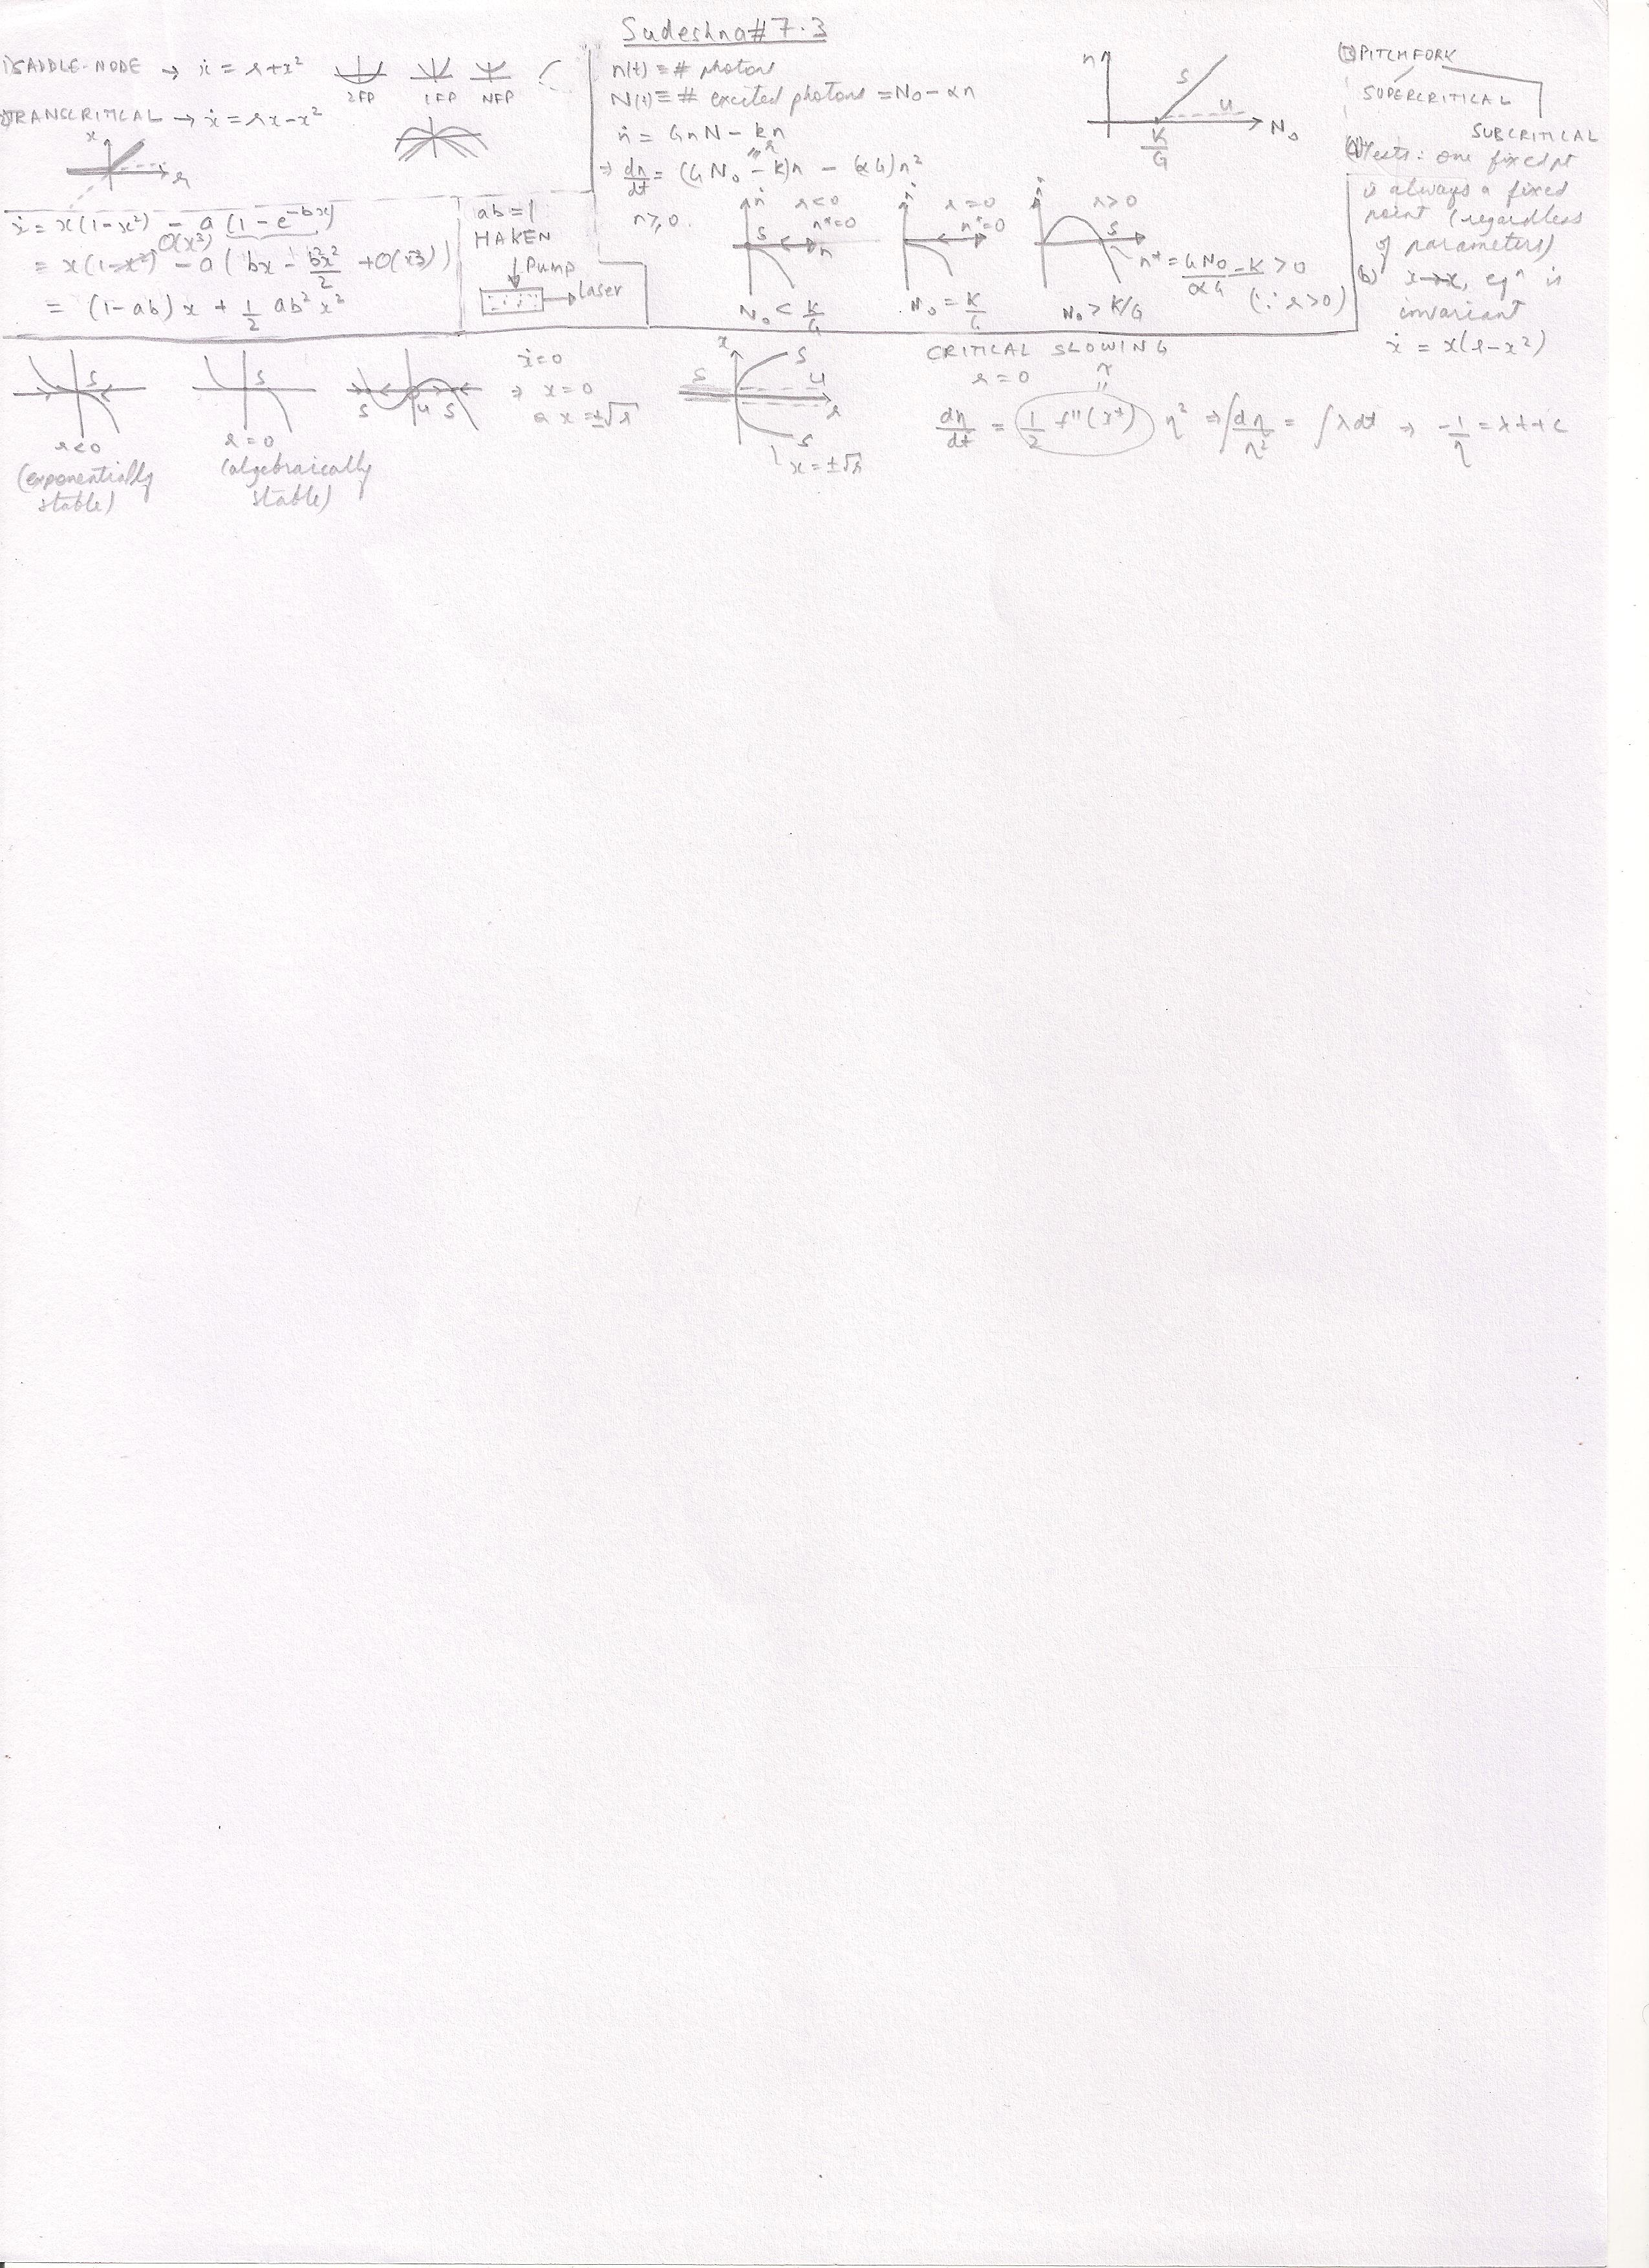 Sudeshna # 7.3
1) SADDLE-NODE → ẋ = r+x²
2FP 1FP NFP
2) TRANSCRITICAL → ẋ = rx-x²
x
r
ẋ = x(1-x²) - a(1-e^{-bx})
O(x³)
= x(1-x²) - a(bx - b²x²/2 + O(x³))
= (1-ab)x + 1/2 ab²x²
ab=1
HAKEN
↓Pump
→Laser
n(t) = # photons
N(t) = # excited photons = N₀-αn
ṅ = GnN - kn
r
⇒ dn/dt = (GN₀-k)n - (αG)n²
n≥0
ṅ r<0
n*=0
S
n
N₀ < K/G
ṅ r=0
n*=0
N₀ = K/G
ṅ r>0
S
n* = GN₀-K/αG > 0
(∵ r>0)
N₀ > K/G
n
S
u
N₀
K/G
(3) PITCHFORK
SUPERCRITICAL
SUBCRITICAL
(a) Tests: one fixed pt
is always a fixed
point (regardless
of parameters)
(b) x→-x, eqⁿ is
invariant
ẋ = x(r-x²)
S
r<0
(exponentially
stable)
S
r=0
(algebraically
stable)
S u S
ẋ=0
⇒ x=0
or x=±√r
x
S
S
u
r
S
x=±√r
CRITICAL SLOWING
r=0
λ
dη/dt = (1/2 f''(x*)) η² ⇒ ∫dη/η² = ∫λdt ⇒ -1/η = λt+c